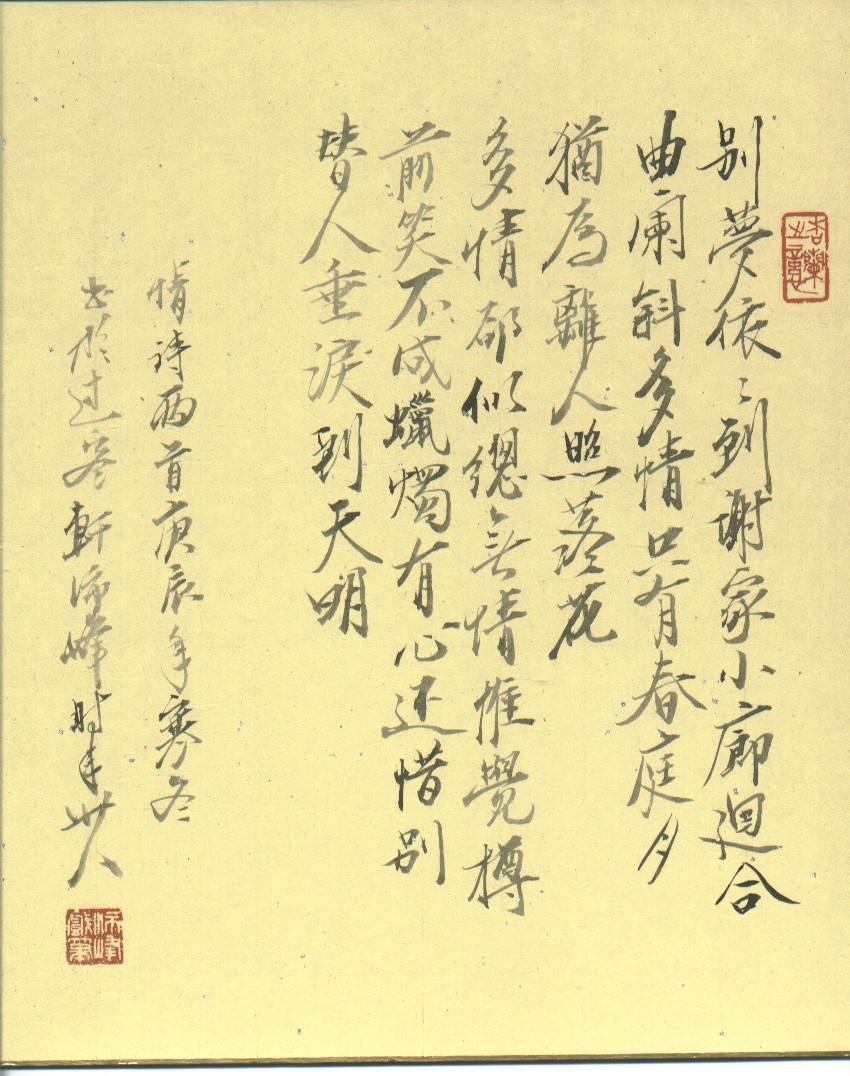 别夢依〻到謝家小廊迴合
曲闌斜多情只有春庭月
猶為離人照落花
多情卻似總無情惟覺樽
前笑不成蠟燭有心还惜别
替人垂淚到天明
情诗两首庚辰年寒冬
书於过客軒 峰时年卅八